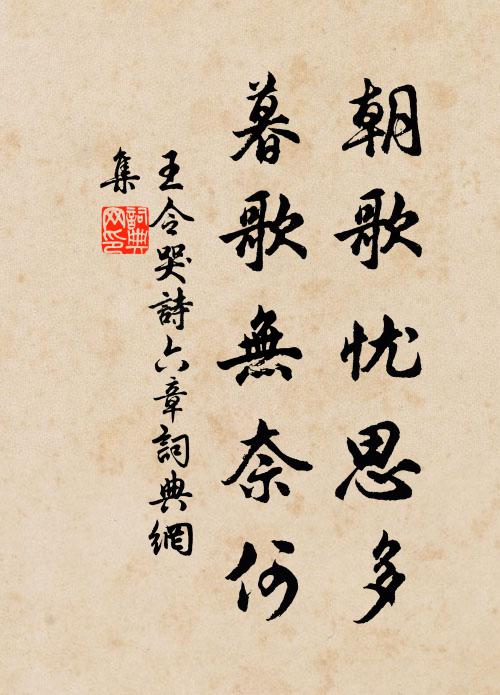 朝歌忧思多
暮歌無奈何
王令哭詩六章詞典網
集
詞典網印